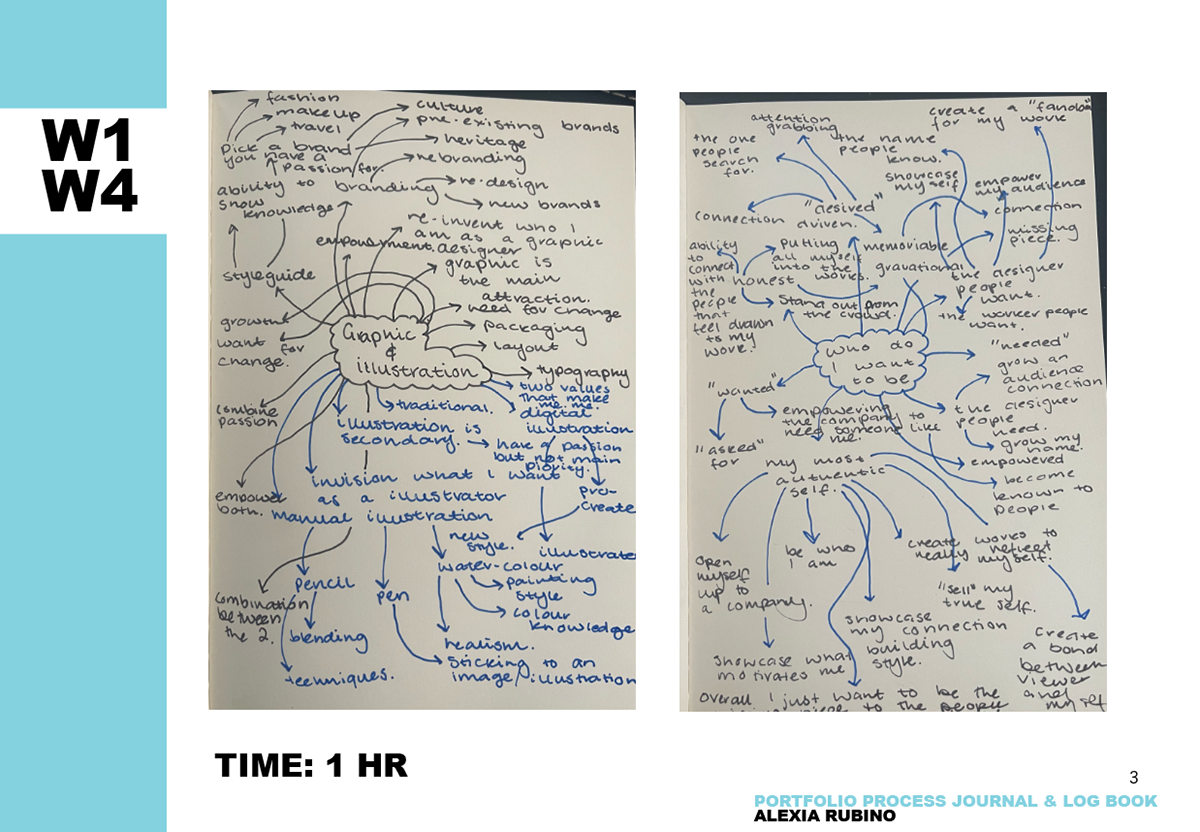 W1
W4
fashion
makeup
travel
pick a brand
you have a
passion for.
culture
pre-existing brands
heritage
rebranding
ability to
show
knowledge
branding
re-design
new brands
re-invent who I
am as a graphic
designer
empowerment.
graphic is
the main
attraction.
styleguide
need for change
packaging
layout
typography
growth
want for
change.
Graphic
&
illustration
two values
that make
me me.
digital
illustration
traditional.
combine
passion
illustration is
secondary.
have a passion
but not main
piority.
invision what I want
as a illustrator
pro-
create
empower
both.
manual illustration
new
style.
illustrate
water-colour
painting
style
colour
knowledge
pencil
pen
combination
between
the 2.
blending
realism.
sticking to an
image/illustration
techniques.
attention
grabbing
create a "fandom"
for my work
the one
people
search
for.
the name
people
know.
showcase
my self
empower
my audience
connection
"desired"
driven.
connection
missing
piece.
ability
to
connect
with
the
people
that
feel drawn
to my
work.
putting
all myself
into the
works.
memoriable
honest
gravational
the designer
people
want.
stand out from
the crowd.
the worker people
want.
who do
I want
to be
"needed"
grow an
audience
connection
"wanted"
empowering
the company to
need someone like
me.
the designer
people
need.
grow my
name.
"asked"
for
my most
authentic
self.
empowered
become
known to
people
open
myself
up to
a company.
be who
I am
create works to
really reflect
myself.
"sell" my
true self.
showcase
my connection
building
style.
create
a bond
between
viewer
and
myself
showcase what
motivates me
overall I just want to be the
piece to the people
TIME: 1 HR
3
PORTFOLIO PROCESS JOURNAL & LOG BOOK
ALEXIA RUBINO